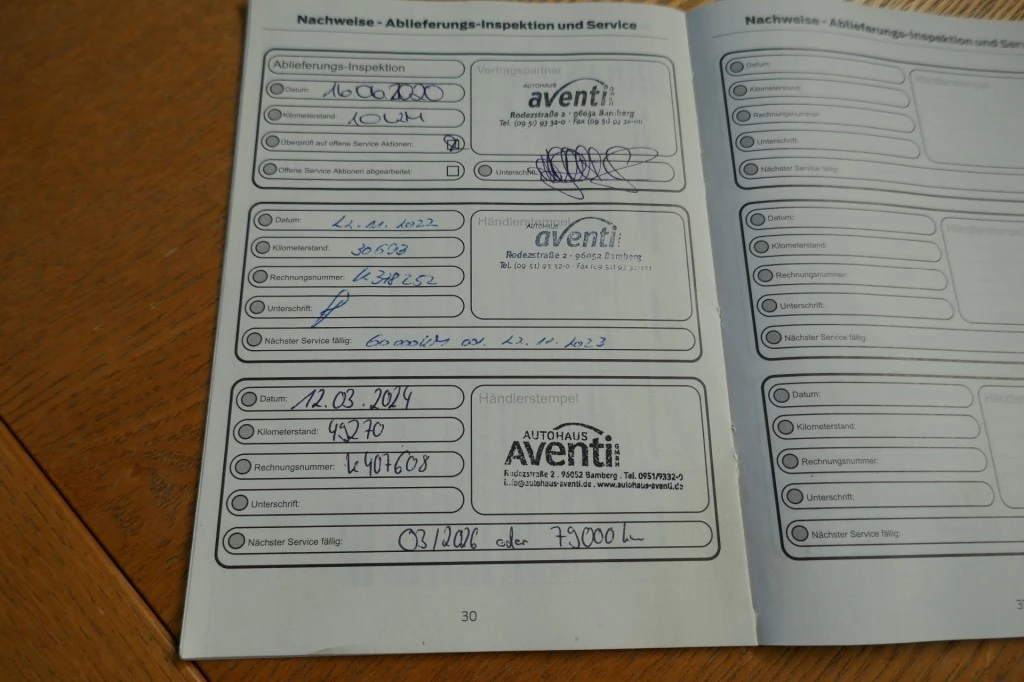 Nachweise - Ablieferungs-Inspektion und Service
Ablieferungs-Inspektion
Datum: 16.06.2020
Kilometerstand: 10 KM
Überprüft auf offene Service Aktionen:
Offene Service Aktionen abgearbeitet:
Vertragspartner
AUTOHAUS
aventi GMBH
Rodezstraße 2 · 96052 Bamberg
Tel. (09 51) 93 32-0 · Fax (09 51) 93 32-
Unterschrift:
Datum: 22.11.2022
Kilometerstand: 30693
Rechnungsnummer: K378252
Unterschrift:
Händlerstempel
AUTOHAUS
aventi
Rodezstraße 2 · 96052 Bamberg
Tel. (09 51) 93 32-0 · Fax (09 51) 93 32-
Nächster Service fällig: 60 000KM od. 22.11.2023
Datum: 12.03.2024
Kilometerstand: 49270
Rechnungsnummer: K407608
Unterschrift:
Händlerstempel
AUTOHAUS
Aventi GMBH
Rodezstraße 2 . 96052 Bamberg . Tel. 0951/9332-0
info@autohaus-aventi.de . www.autohaus-aventi.de
Nächster Service fällig: 03/2026 oder 79000 km
30
Nachweise - Ablieferungs-Inspektion und Ser
Datum:
Kilometerstand:
Rechnungsnummer:
Unterschrift:
Nächster Service fällig:
Datum:
Kilometerstand:
Rechnungsnummer:
Unterschrift:
Nächster Service fällig:
Datum:
Kilometerstand:
Rechnungsnummer:
Unterschrift:
Nächster Service fällig: